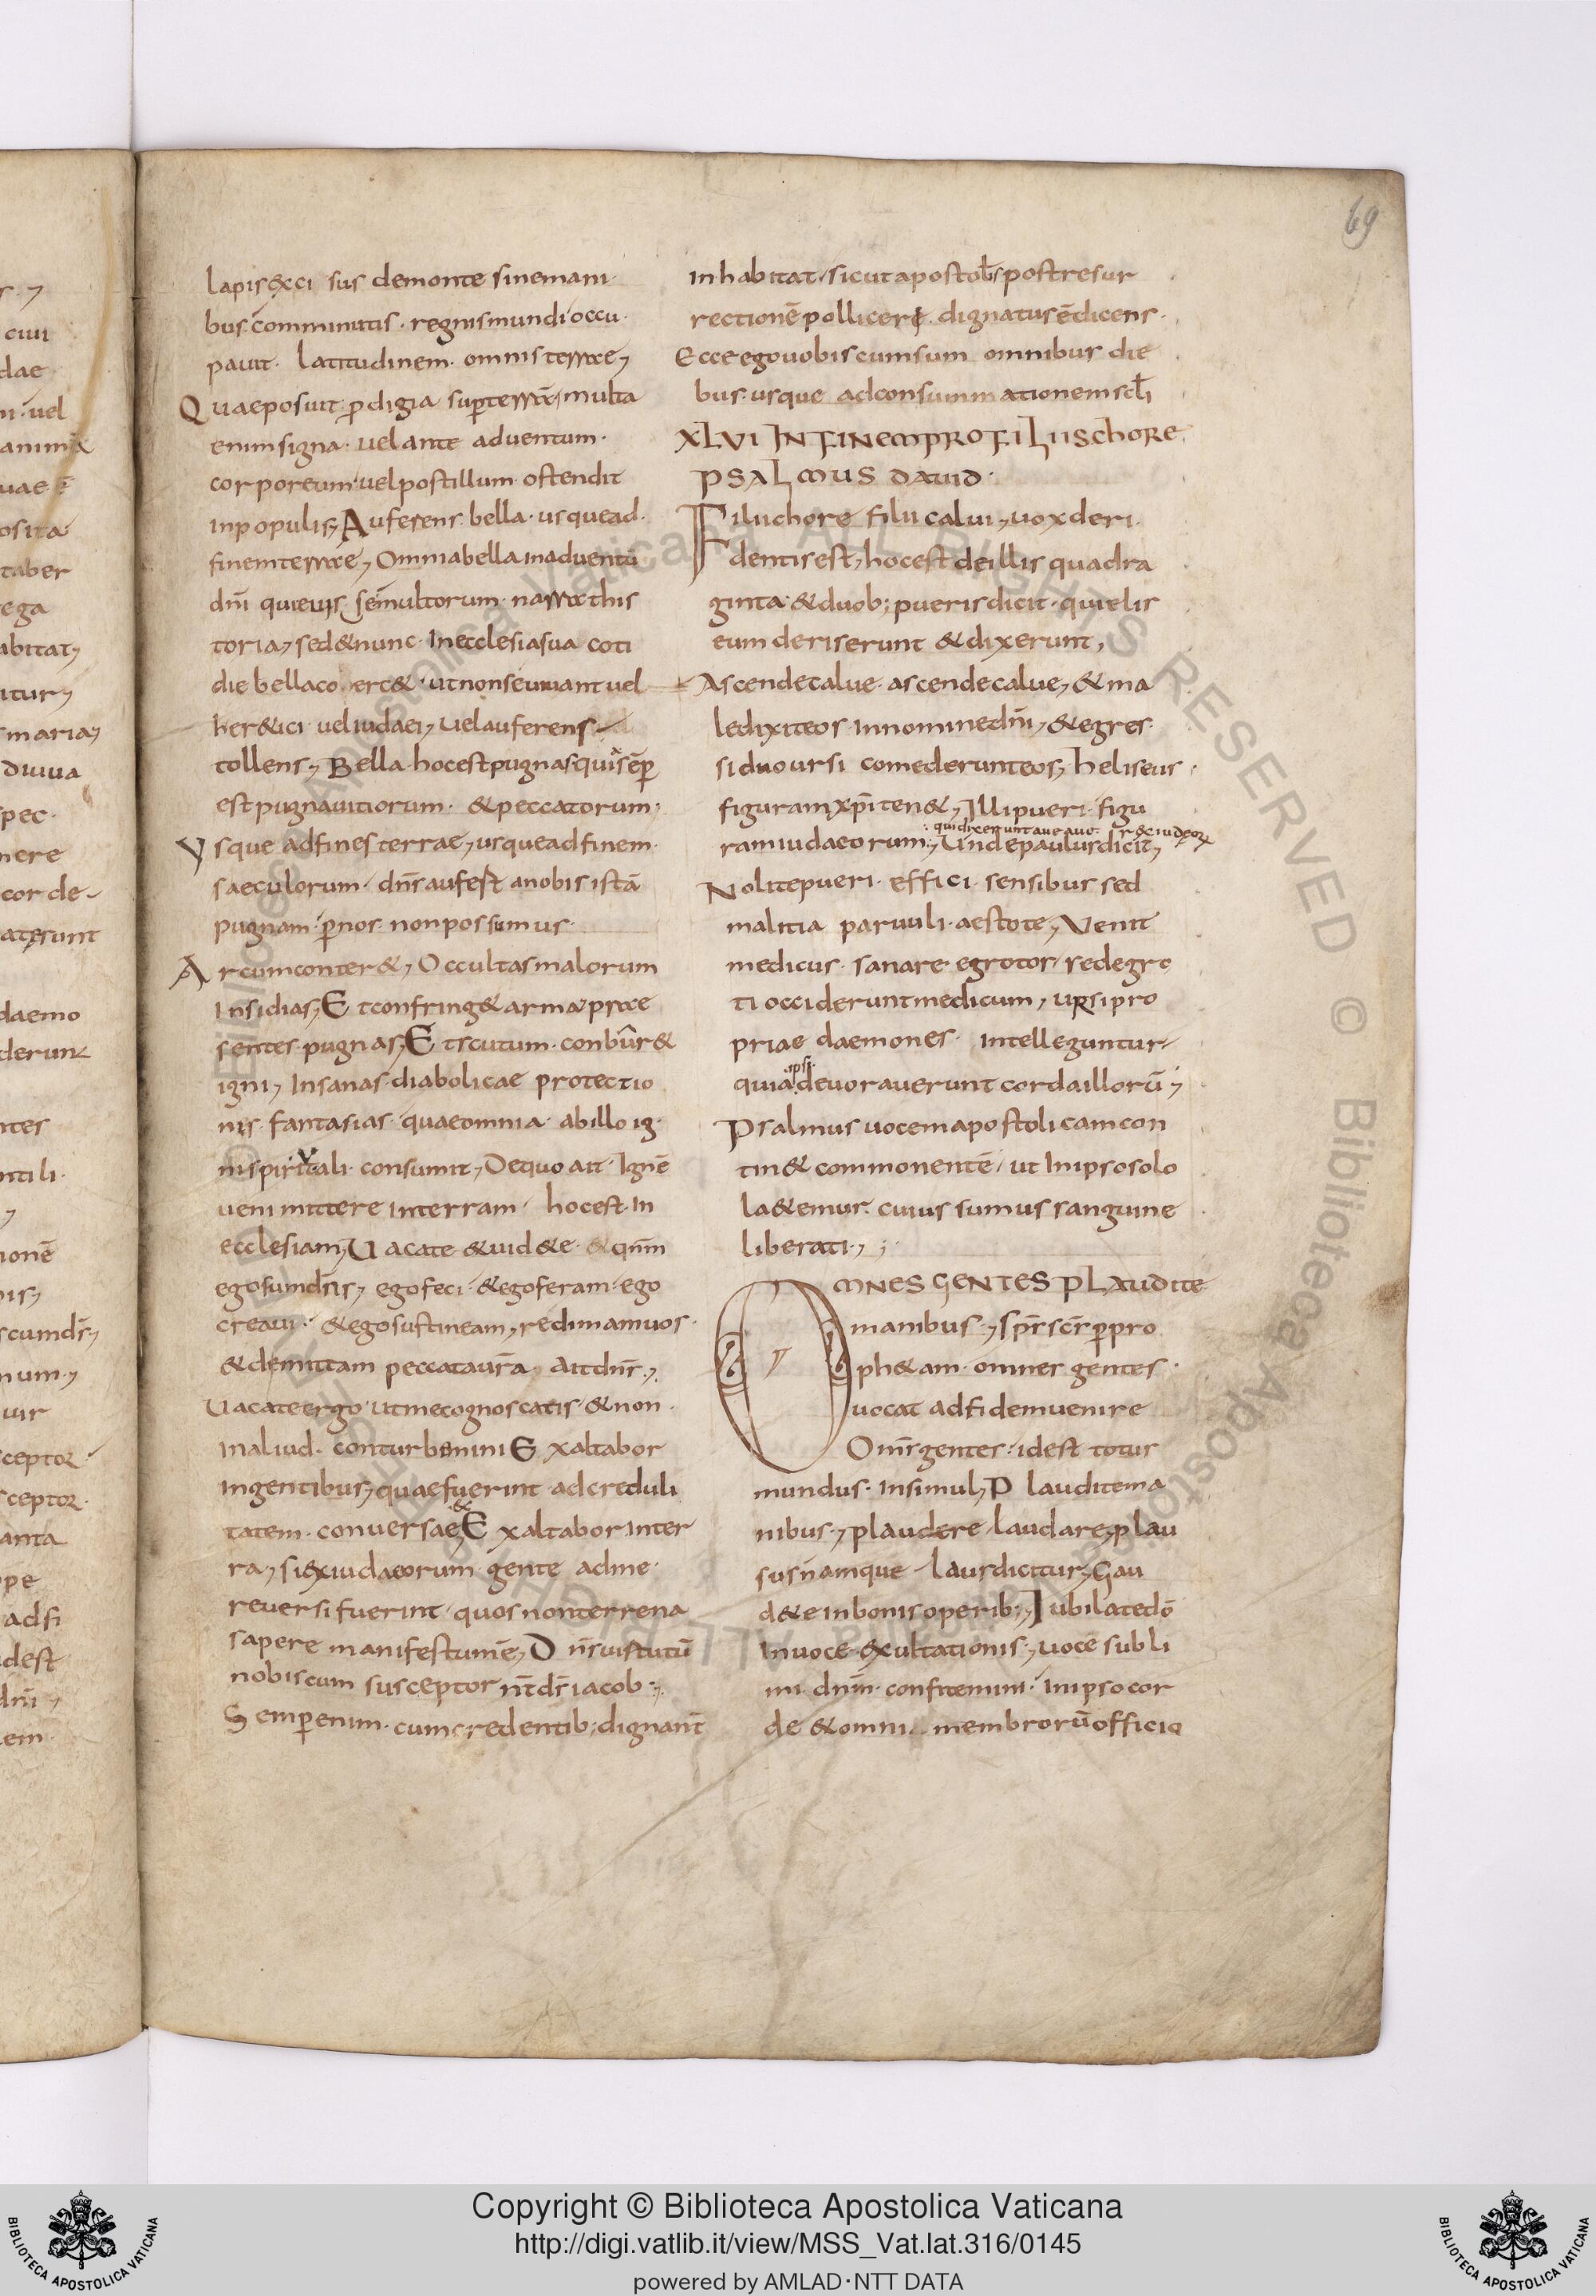 69
lapis excisus demonte sinemani
bus comminutis · regnis mundi occu
pauit · latitudinem · omnis terrae,
Quae posuit p̄digia sup̄ terrā, multa
enim signa · uel ante aduentum ·
corporeum uel postillum · ostendit
inpopulis, Auferens bella · usquead
finem terrae, Omnia bella inaduentū
dn̄i
toria, sed & nunc · In ecclesia sua coti
die bella ut non seuiant uel
her&ici uel iudaei, uel auferens
tollens, Bella · hocest pugnas quia sēp̄
est pugna uitiorum · & peccatorum ·
Vsque ad fines terrae, usque ad finem
saeculorum · dn̄s aufest anobis istā
pugnam · p̄ nos · non possumus ·
Arcum conter&, Occultas malorum
Insidias, Et confring& arma, prae
sentes pugnas, Et scutum · conbur&
igni, Insanas · diabolicae protectio
nis · fantasias · quae omnia · abillo ig
ni spiritali · consumit, Dequo ait · Ignē
ueni mittere interram · hocest · in
ecclesiam, Uacate & uid&e · qn̄m
ego sum dn̄s, ego feci · & ego feram · ego
creaui · & ego sustineam, redimam uos ·
& demittam peccata ur̄a · ait dn̄s,
Uacate ergo ut me cognoscatis · & non
Inaliud · conturbemini Exaltabor
Ingentibus, quae fuerint ad creduli
&
tatem · conuersae, Exaltabor inter
ra, si ex iudaeorum · gente adme ·
reuersi fuerint quos non terrena
sapere manifestum ē, Dn̄s uirtutū
nobiscum susceptor nt̄ ds̄ iacob,
Semp̄ enim · cum credentib; dignant̄
Inhabitat, sicut apostol̄s post resur
rectionē pollicere · dignatus ē dicens ·
Ecce ego uobiscum sum omnibus die
bus · usque ad consummationem scl̄i
XLVI IN FINEM PRO FILIIS CHORE
PSALMUS DAUID ·
Filii chore filii calui, uox deri
dentis est, hocest deillis quadra
ginta · & duob; pueris dicit · qui elis
eum deriserunt & dixerunt,
Ascende calue · ascende calue, & ma
ledixit eos · Innomine dn̄i, & egres
si duo ursi comederunt eos, heliseus ·
figuram xp̄i ten&, Illi pueri · figu
qui dixerunt aue aue · rex iudeorꝝ
ram iudaeorum, Unde paulus dicit,
Nolite pueri · effici · sensibus sed
malitia paruuli · aestote, Venit
medicus · sanare egrotos, sed egro
ti occiderunt medicum, ursi pro
priae daemones · intelleguntur
ipsi
quia deuorauerunt corda illorū,
Psalmus uocem apostolicam con
tin& commonentē, ut Inipso solo
la&emur · cuius sumus sanguine
liberati,
OMNES GENTES PLAUDITE
manibus, sp̄s sc̄s p̄ pro
ph&am · omnes gentes ·
uocat ad fidem uenire
Omn̄s gentes · idest totus
mundus · Insimul, Plaudite ma
nibus, plaudere laudare, plau
sus namque laus dicitur, Gau
d&e inbonis operib;, Iubilate dō
Inuoce · exultationis, uoce subli
mi · dn̄m · confitemini · Inipso cor
de & omni membrorū officio
Copyright © Biblioteca Apostolica Vaticana
http://digi.vatlib.it/view/MSS_Vat.lat.316/0145
powered by AMLAD·NTT DATA